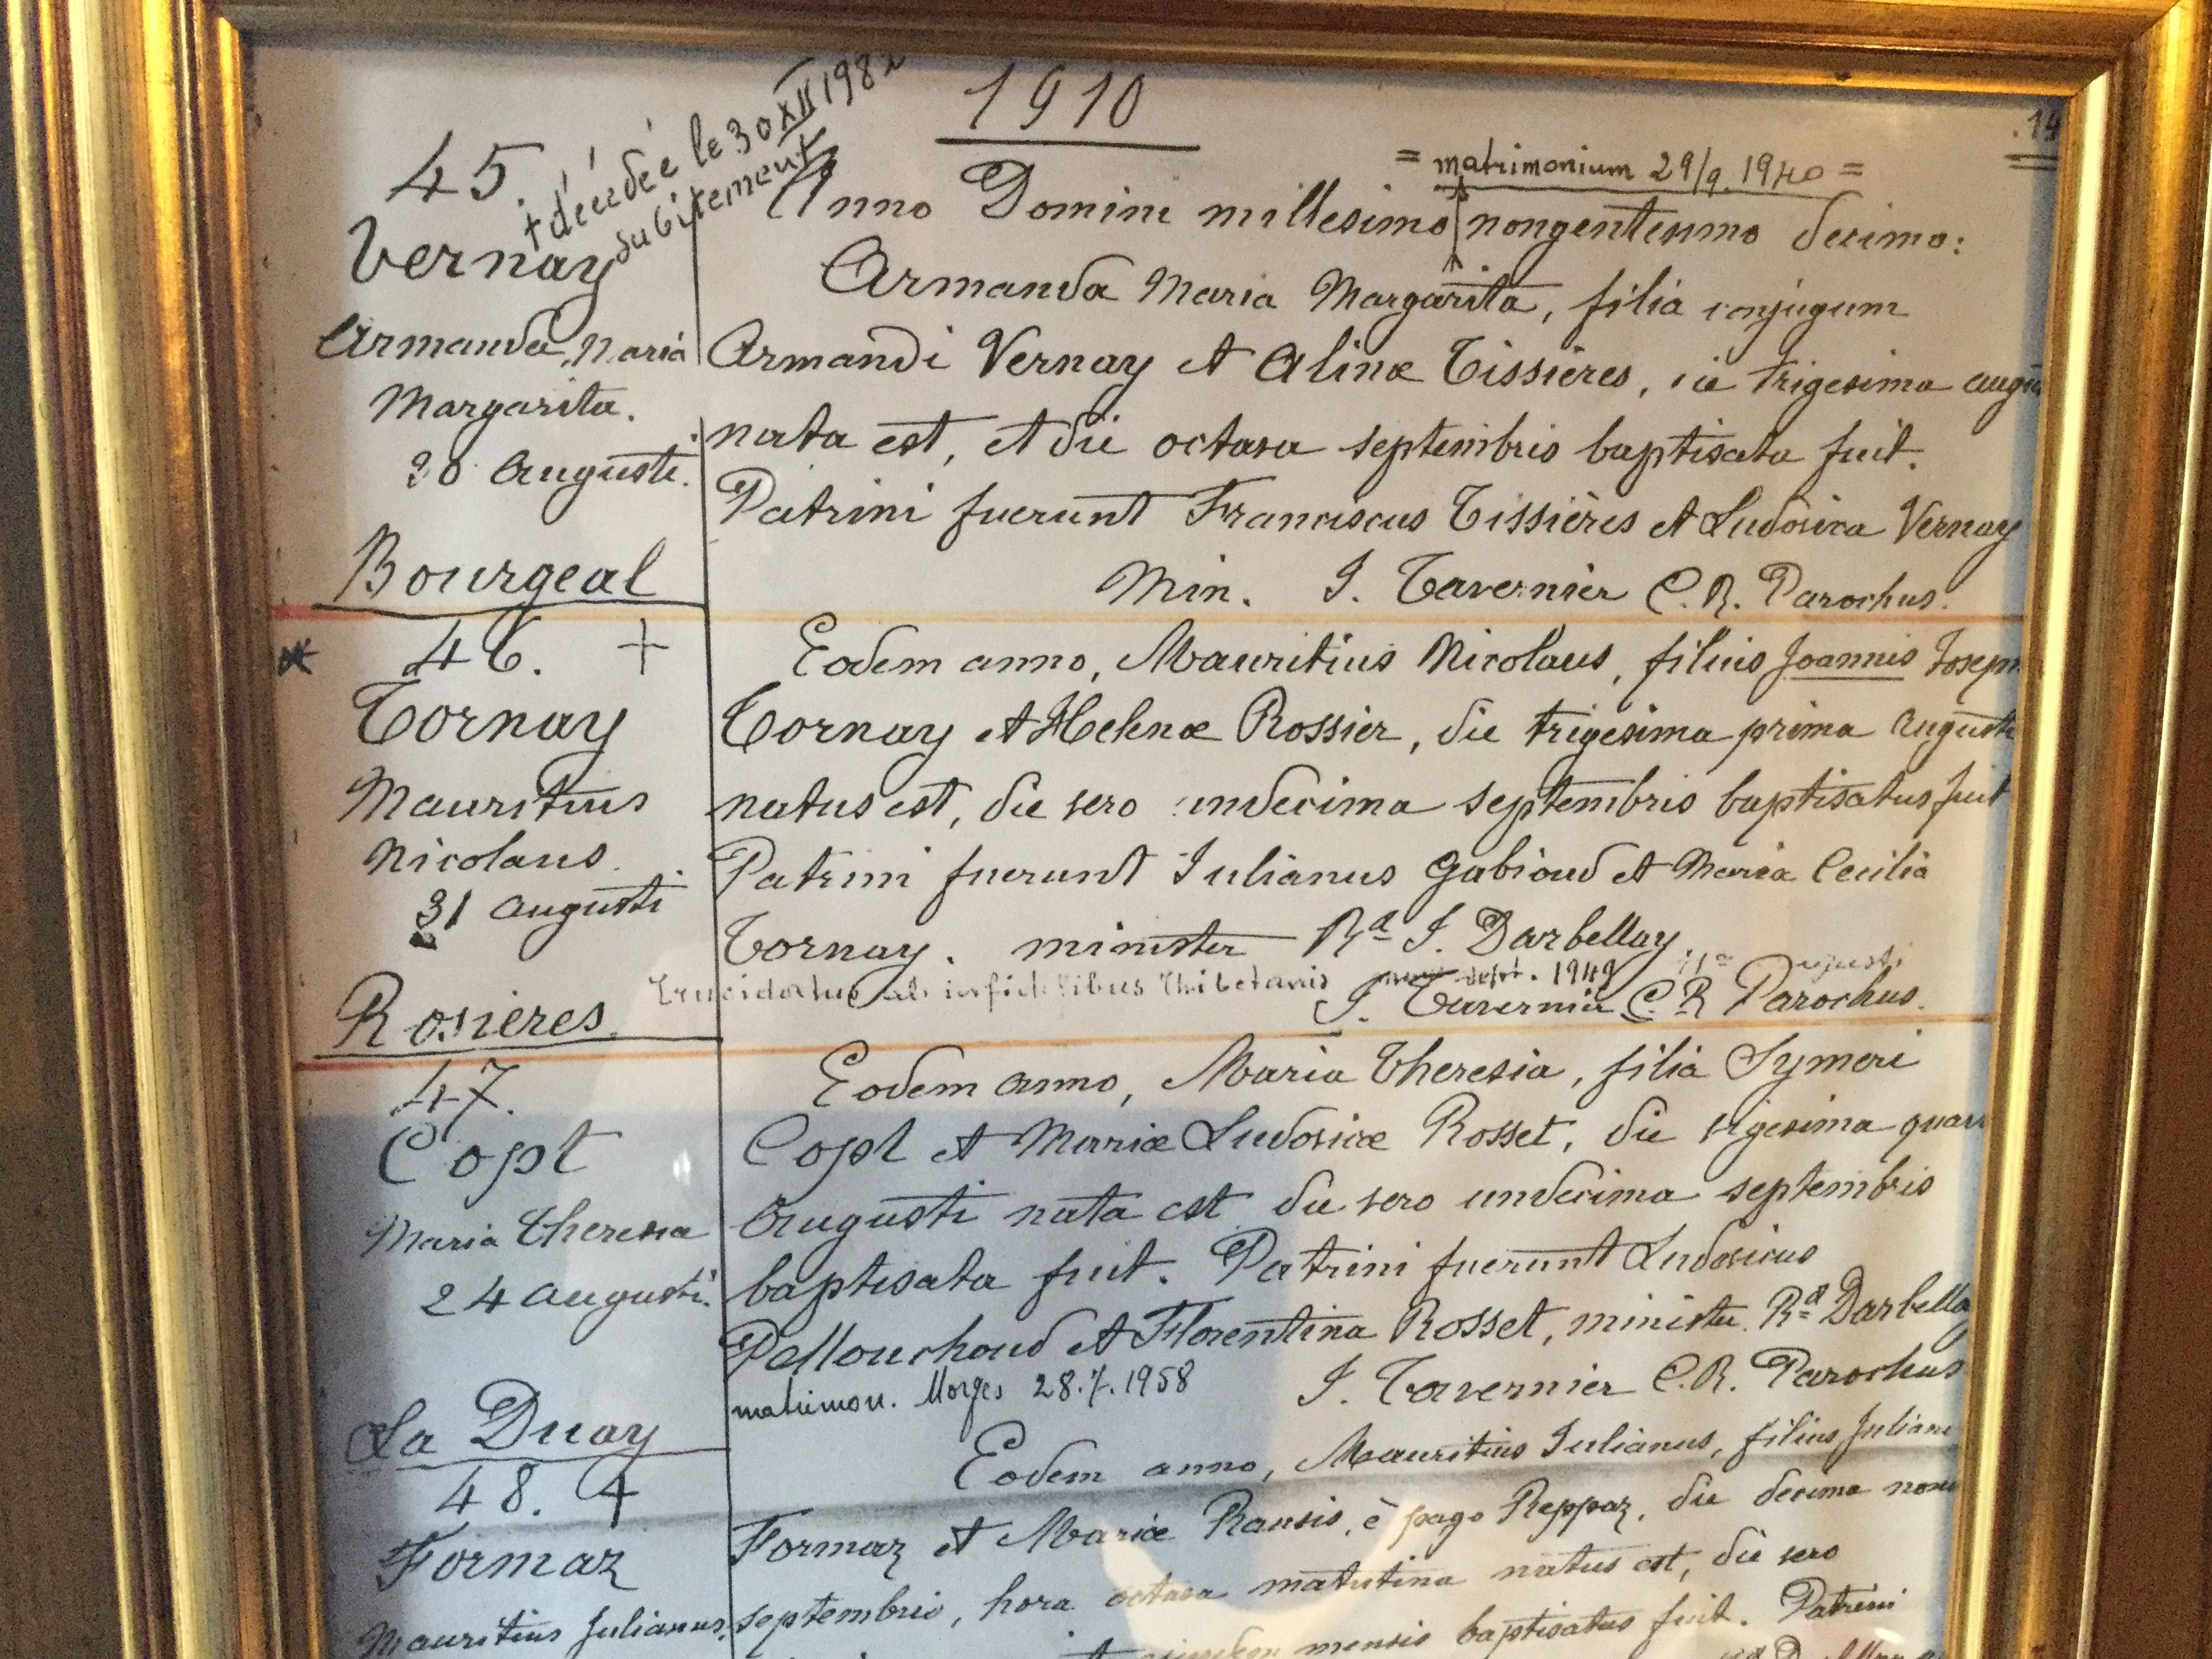 1910
14
45.
† décédée le 30 XII 198
subitement
= matrimonium 29/9. 1940 =
Vernay
Armanda Maria
Margarita.
30 Augusti.
Bourgeal
Anno Domini millesimo nongentesimo decimo:
Armanda Maria Margarita, filia conjugum
Armandi Vernay et Alinæ Tissières, die trigesima augu
nata est, et die octava septembris baptisata fuit.
Patrini fuerunt Franciscus Tissières et Ludovica Vernay
Min. J. Tavernier C. R. Parochus.
46. +
Tornay
Mauritius
Nicolaus
31 augusti
Rosières
Eodem anno, Mauritius Nicolaus, filius Joannis Joseph
Tornay et Helenæ Rossier, die trigesima prima Augusti
natus est, die vero undecima septembris baptisatus fuit
Patrini fuerunt Julianus Gabioud et Maria Cecilia
Tornay. minister Rd J. Darbellay.
Trucidatus ab infidelibus Thibetanis sept. 1949
J. Tavernier C. R Parochus.
47.
Copt
Maria Theresia
24 augusti.
La Duay
Eodem anno, Maria Theresia, filia Symeri
Copt et Mariæ Ludovicæ Rosset, die vigesima quar
Augusti nata est die vero undecima septembris
baptisata fuit. Patrini fuerunt Ludovicus
Pellouchoud et Florentina Rosset, minister Rd Darbella
matrimon. Morges 28.7.1958
J. Tavernier C. R. Parochus
48.
Formaz
Mauritius Julianus.
Eodem anno, Mauritius Julianus, filius Juliani
Formaz et Mariæ Rausis, è pago Reppaz, die decima nona
septembris, hora octava matutina natus est, die vero
ejusdem mensis baptisatus fuit. Patrini